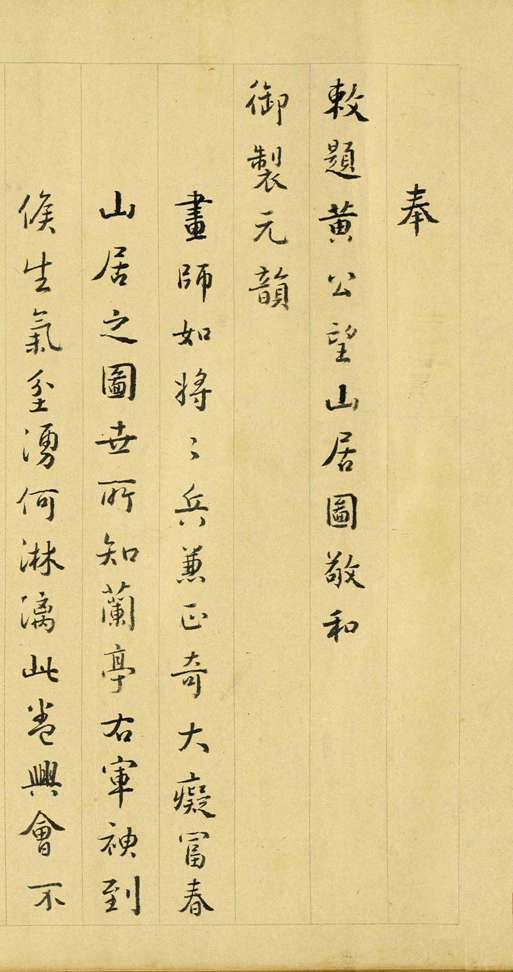 奉
敕題黃公望山居圖敬和
御製元韻
畫師如將〻兵兼正奇大癡富春
山居之圖世所知蘭亭右軍神到
候生氣坌湧何淋漓此卷興會不